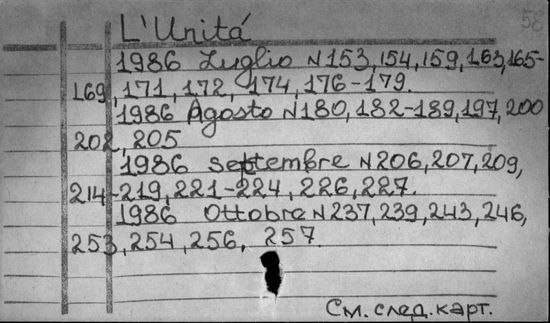 58
L'Unitá
1986 Luglio N153,154,159,163,165-
169,171,172, 174,176-179.
1986 Agosto N180,182-189,197,200
202,205
1986 settembre N206,207,209,
214-219,221-224,226,227.
1986 Ottobre N237,239,243,246,
253,254,256, 257.
См. след. карт.